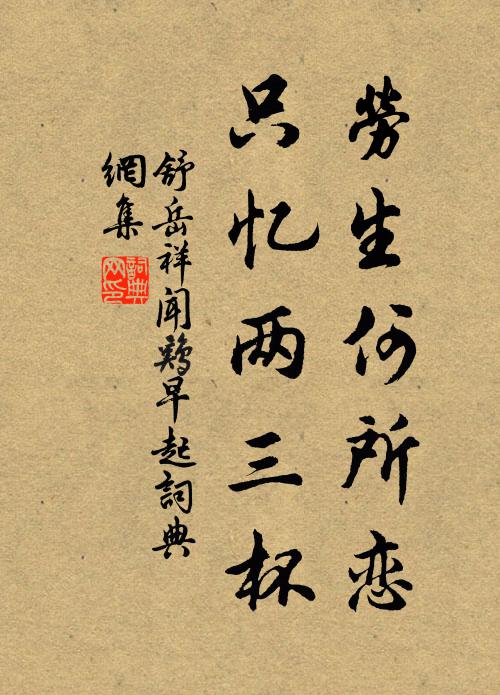 勞生何所恋
只忆两三杯
舒岳祥闻鷄早起詞典
網集
詞典
网印